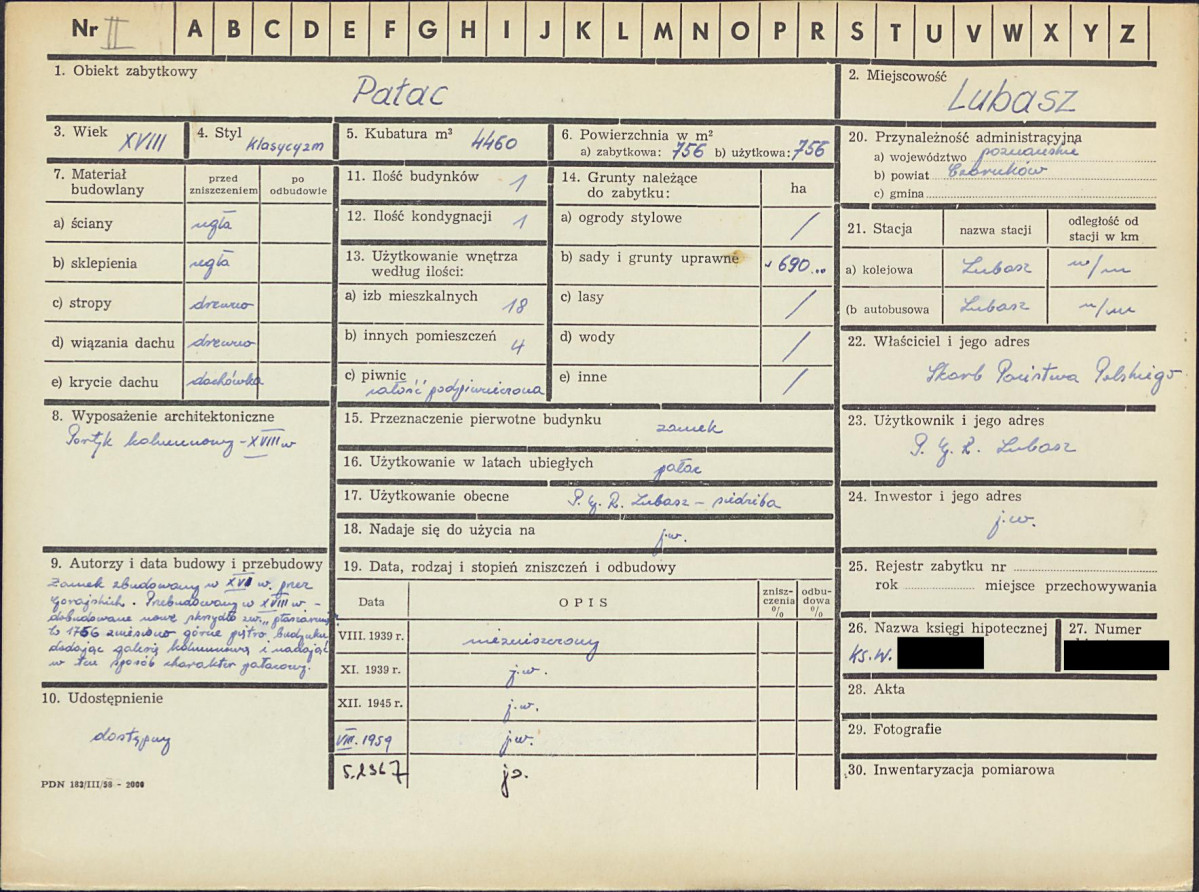 Nr II A B C D E F G H I J K L M N O P R S T U V W X Y Z
1. Obiekt zabytkowy
Pałac
2. Miejscowość
Lubasz
3. Wiek XVIII
4. Styl klasycyzm
5. Kubatura m³ 4460
6. Powierzchnia w m²
a) zabytkowa: 756 b) użytkowa: 756
7. Materiał budowlany
przed zniszczeniem
po odbudowie
a) ściany cegła
b) sklepienia cegła
c) stropy drewno
d) wiązania dachu drewno
e) krycie dachu dachówka
8. Wyposażenie architektoniczne
Portyk kolumnowy - XVIII w
9. Autorzy i data budowy i przebudowy
Zamek zbudowany w XVII w. przez
Gorajskich. Przebudowany w XVIII w. -
dobudowane nowe skrzydło zw.
W 1756 zniesiono górne piętro budynku
dodając galerię kolumnową i nadając
w ten sposób charakter pałacowy.
10. Udostępnienie
dostępny
PDN 182/III/58 - 2000
11. Ilość budynków 1
12. Ilość kondygnacji 1
13. Użytkowanie wnętrza
według ilości:
a) izb mieszkalnych 18
b) innych pomieszczeń 4
c) piwnic
całość podpiwniczona
14. Grunty należące
do zabytku:
ha
a) ogrody stylowe /
b) sady i grunty uprawne 690
c) lasy /
d) wody /
e) inne /
15. Przeznaczenie pierwotne budynku
zamek
16. Użytkowanie w latach ubiegłych
pałac
17. Użytkowanie obecne P.G.R. Lubasz - siedziba
18. Nadaje się do użycia na j.w.
19. Data, rodzaj i stopień zniszczeń i odbudowy
Data
OPIS
znisz-
czenia
%
odbu-
dowa
%
VIII. 1939 r. niezniszczony
XI. 1939 r. j.w.
XII. 1945 r. j.w.
VIII. 1959 j.w.
20. Przynależność administracyjna
a) województwo poznańskie
b) powiat Czarnków
c) gmina
21. Stacja
nazwa stacji
odległość od
stacji w km
a) kolejowa Lubasz
(b autobusowa Lubasz
22. Właściciel i jego adres
Skarb Państwa Polskiego
23. Użytkownik i jego adres
P. G. R. Lubasz
24. Inwestor i jego adres
j.w.
25. Rejestr zabytku nr
rok miejsce przechowywania
26. Nazwa księgi hipotecznej
Ks.W.
27. Numer
28. Akta
29. Fotografie
30. Inwentaryzacja pomiarowa